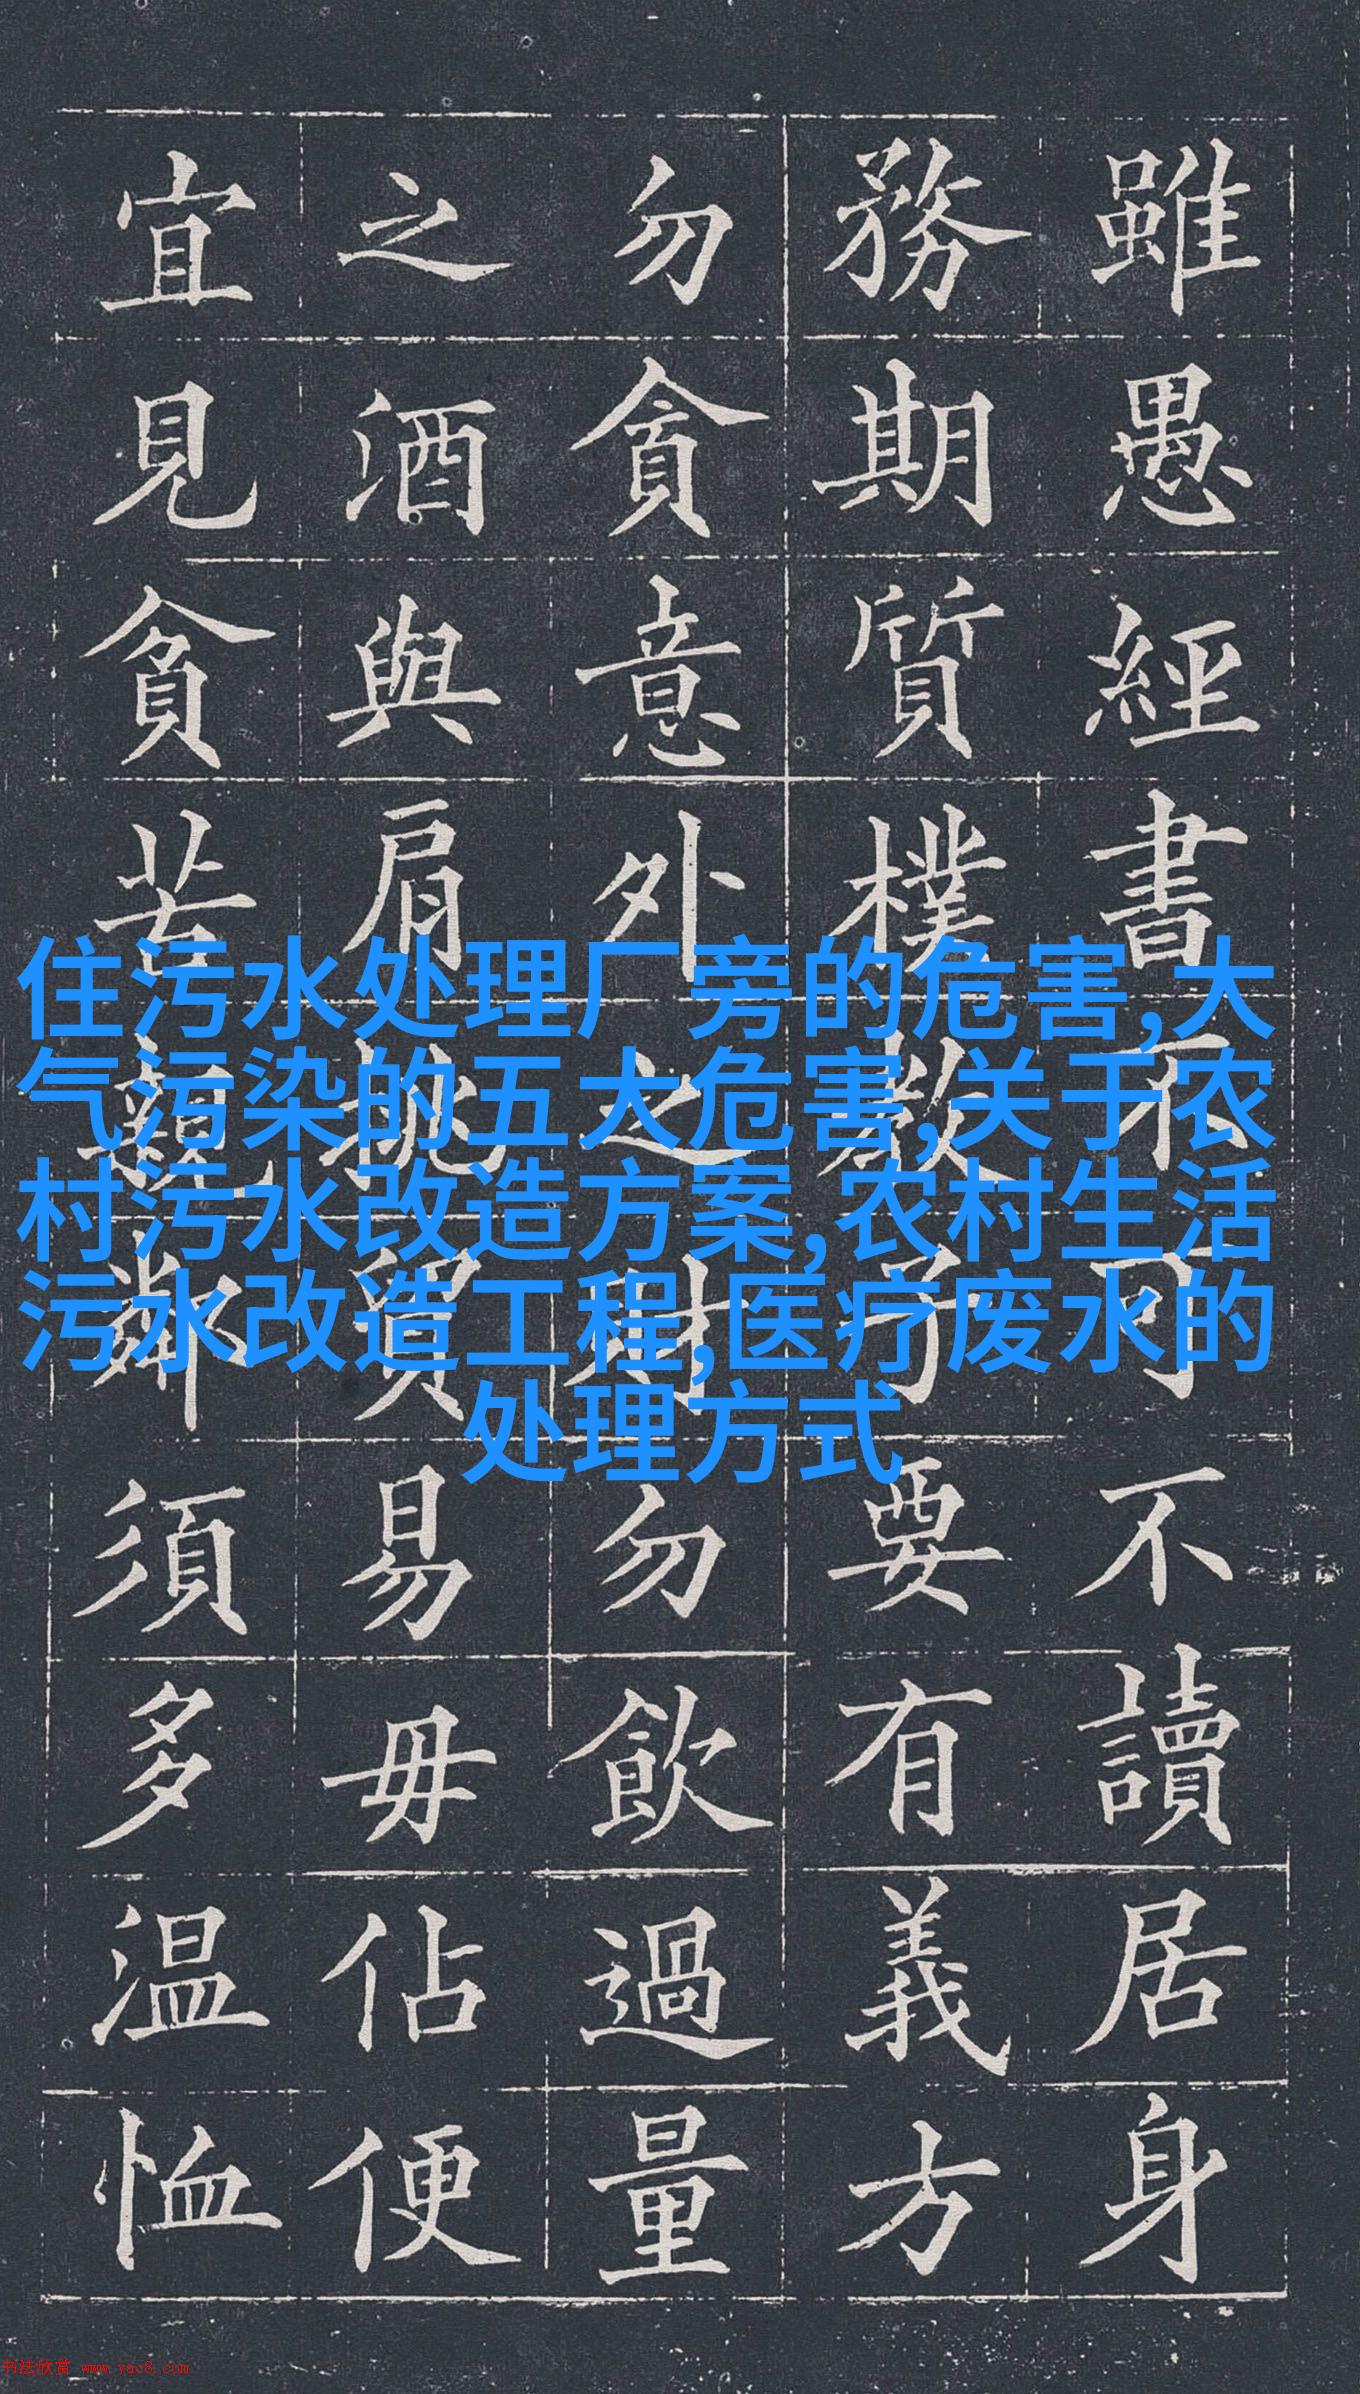 雖愚經書不可不讀居身
務期質樸教子要有義方
勿貪意外之財勿飲過量
之酒與肩挑貿易毋佔便
宜見貧苦親鄰須多温恤
住污水处理厂旁的危害,大
气污染的五大危害,关于农
村污水改造方案,农村生活
污水改造工程,医疗废水的
处理方式
书法欣赏 www.yac8.com